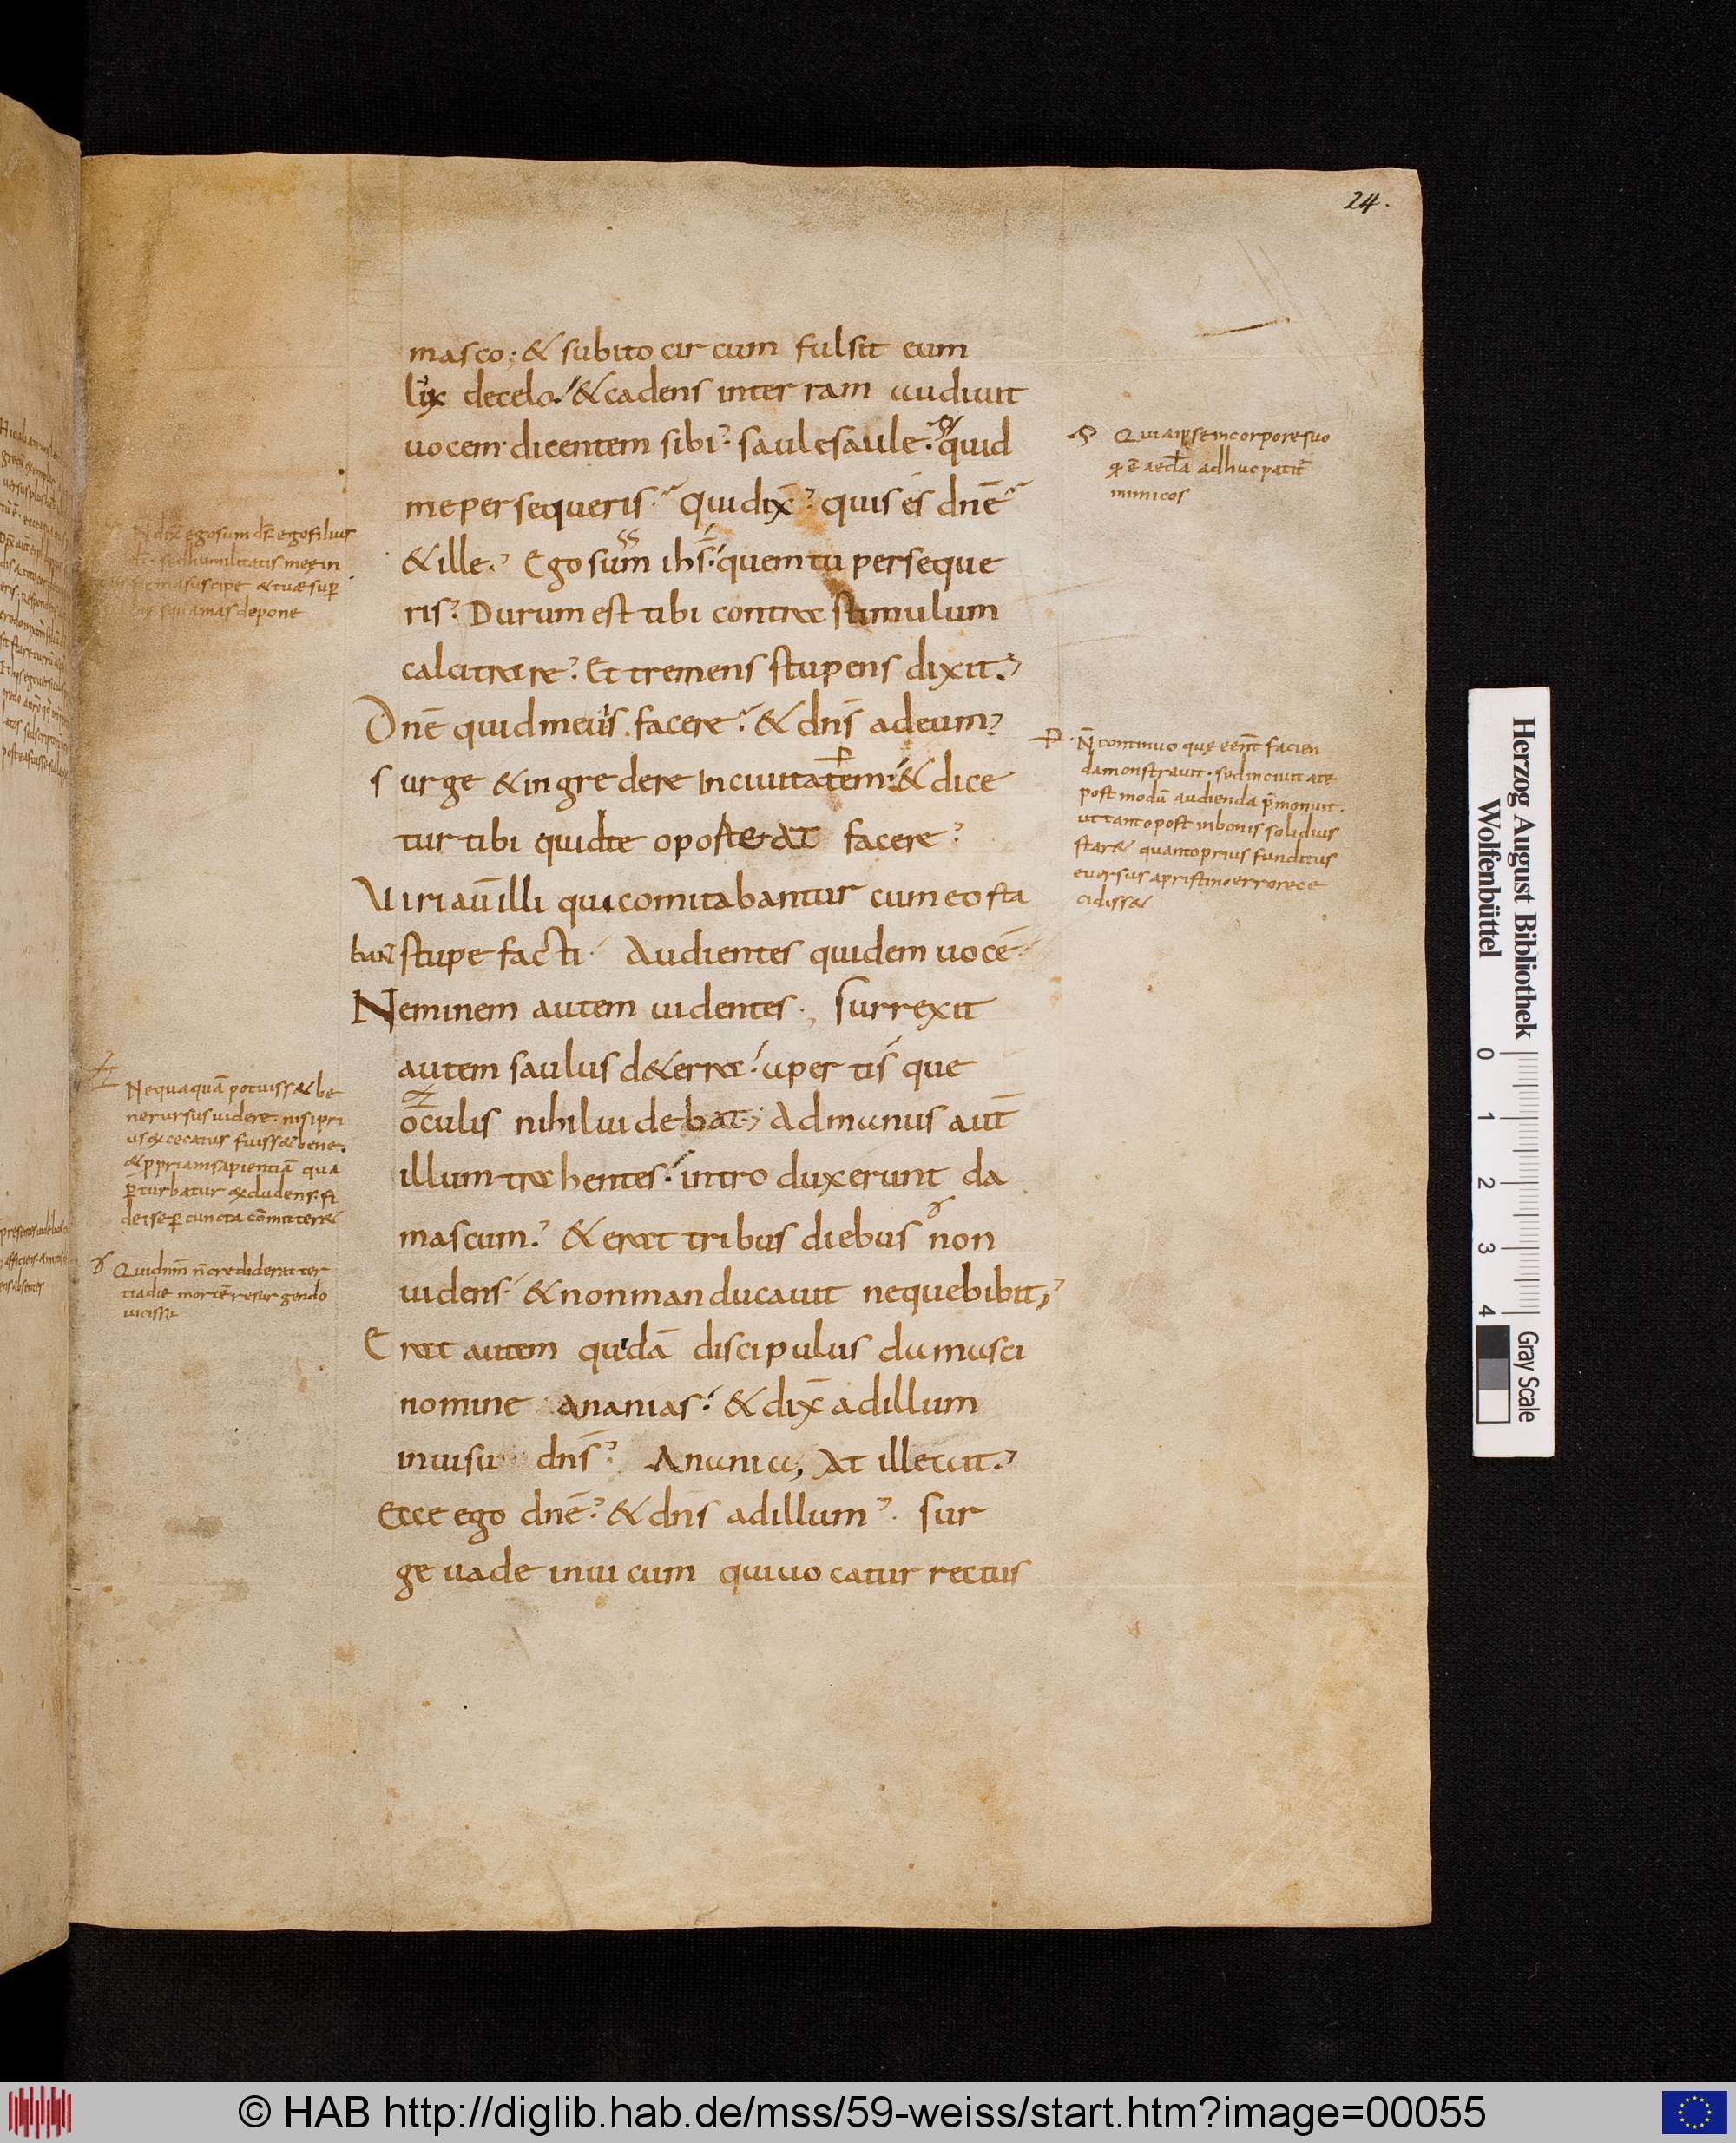 24.
masco; & subito circum fulsit eum
lux decelo. & cadens inter ram audiuit
uocem dicentem sibi. saule saule. quid
me persequeris. qui dix̄. quis es dnē
& ille. Ego sum ihs̄. quem tu perseque
ris. Durum est tibi contra stimulum
calcitrare. Et tremens stupens dixit.
Dnē quid me uis facere. & dns̄ ad eum.
surge & ingredere In ciuitatem. & dice
tur tibi quid te oporteat facere.
Uiri aū illi qui comitabantur cum eo sta
bant stupefacti. Audientes quidem uocē
Neminem autem uidentes., surrexit
autem saulus d& erra. apertis que
oculis nihil uidebat; Ad manus aut̄
illum trahentes. intro duxerunt da
mascum. & erat tribus diebus non
uidens. & non manducauit neque bibit;
Erat autem quidā discipulus damasci
nomine ananias. & dix̄ ad illum
in uisu dns̄. Anania, At ille ait.
Ecce ego dnē. & dns̄ ad illum. sur
ge uade in uicum qui uocatur rectus
Quia ipse in corpore suo
adhuc patit̄
inimicos
N̄ continuo que eēnt facien
da monstrauit. sed in ciuitate
post modū audienda p̄monuit.
ut tanto post in bonis solidius
star& quanto prius funditus
euersus a pristino errore ce
cidiss&
N̄ dix̄ ego sum ds̄ ego filius
sed humilitatis mee in
suscipe & tuae sup̄
squamas depone
Nequaquā potuiss& be
ne rursus uidere. nisi pri
us excecatus fuiss& bene.
& ppriam sapientiā quā
p̄turbatur excludens. fi
dei se p̄ cuncta cōmitter&
Quid nim̄ n̄ crediderat ter
tia die mortē resurgendo
uicisse
Herzog August Bibliothek
Wolfenbüttel
0
1
2
3
4
Gray Scale
© HAB http://diglib.hab.de/mss/59-weiss/start.htm?image=00055